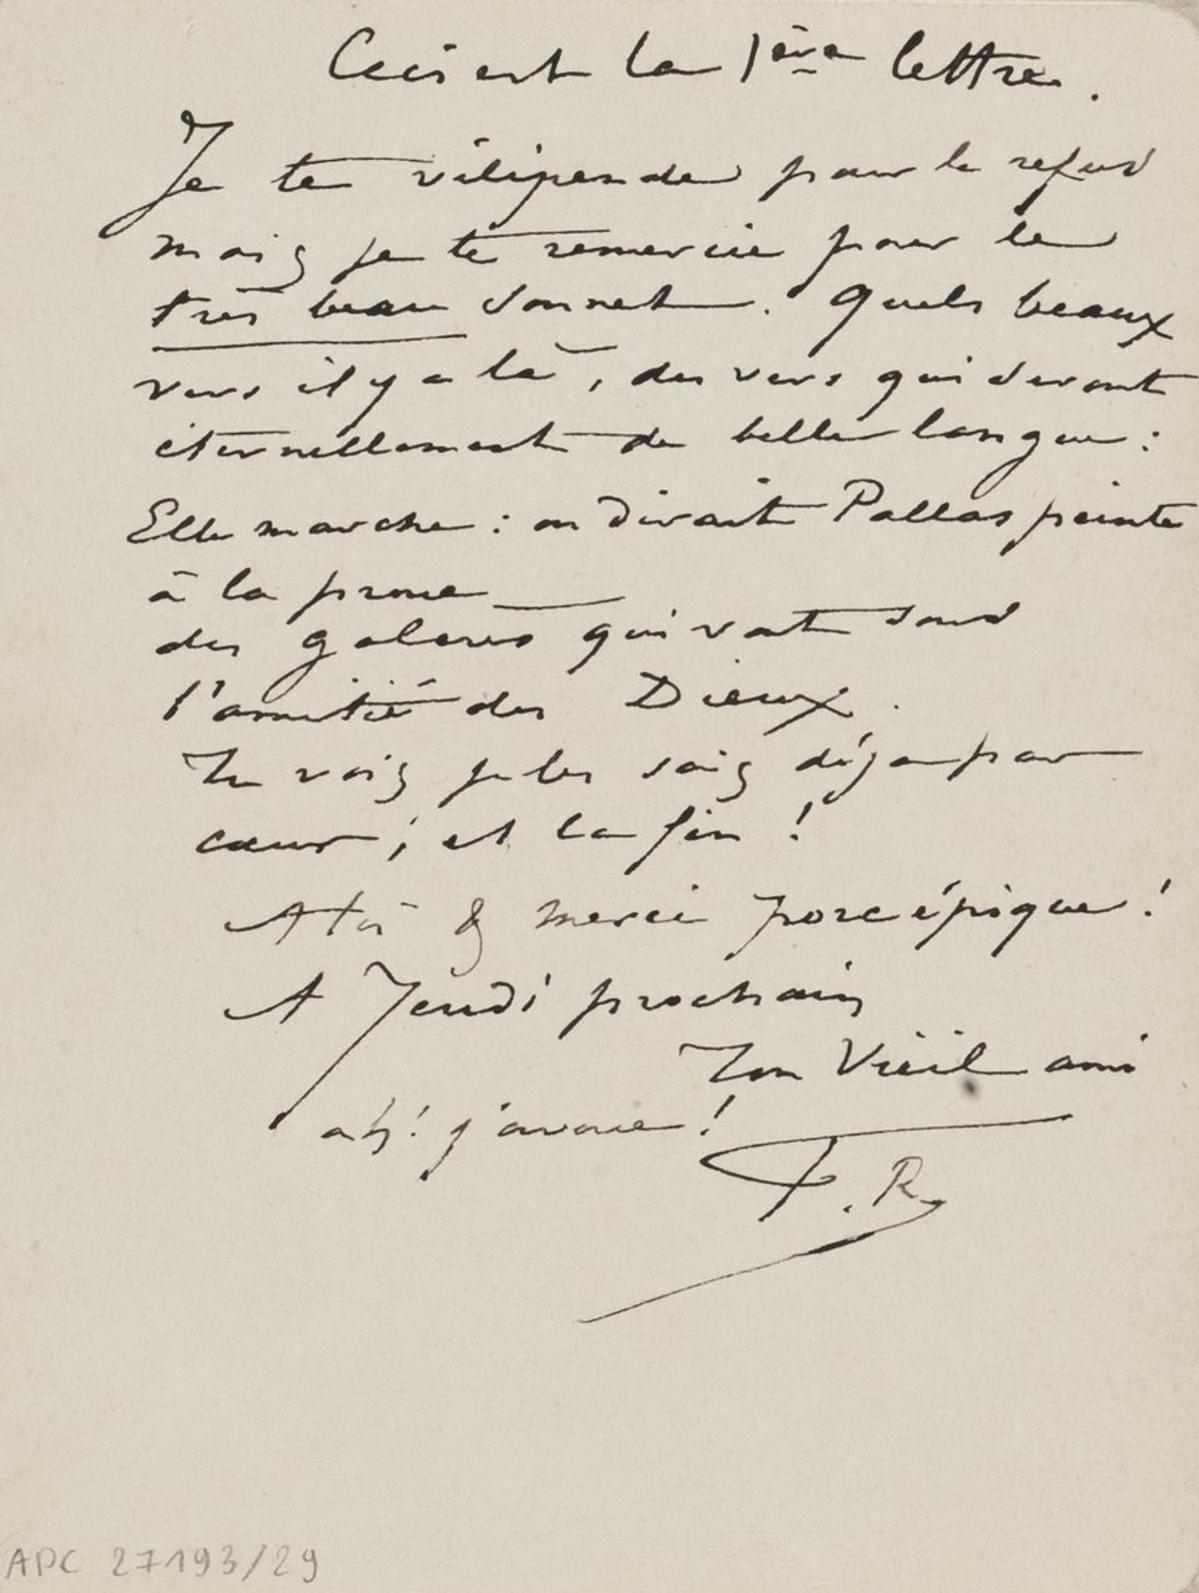 Ceci est la 1ère lettre.
Je te vilipende pour le refus
mais je te remercie pour le
très beau sonnet. Quels beaux
vers il y a là, des vers qui seront
éternellement de belle langue :
Elle marche : on dirait Pallas peinte
à la proue
des galères qui vont sous
l'amitié des Dieux.
Tu vois je les sais déjà par
cœur ; et la fin !
A toi & merci porc épique !
A Jeudi prochain
Ton Vieil ami
ah! j'avoue !
F. R.
APC 27193/29